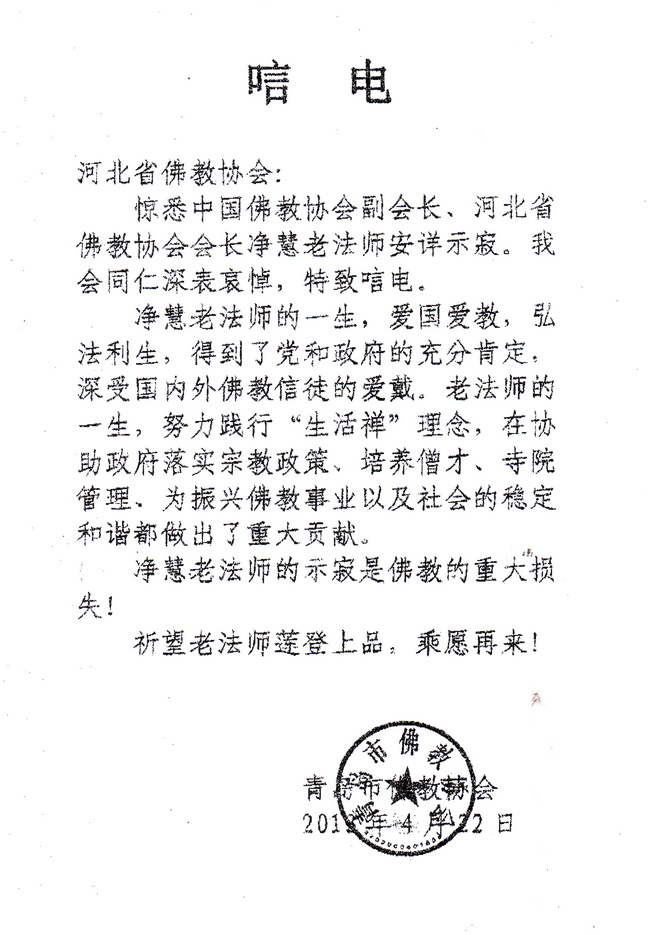 唁 电
河北省佛教协会:
惊悉中国佛教协会副会长、河北省
佛教协会会长净慧老法师安详示寂。我
会同仁深表哀悼，特致唁电。
净慧老法师的一生，爱国爱教，弘
法利生，得到了党和政府的充分肯定，
深受国内外佛教信徒的爱戴。老法师的
一生，努力践行“生活禅”理念，在协
助政府落实宗教政策、培养僧才、寺院
管理、为振兴佛教事业以及社会的稳定
和谐都做出了重大贡献。
净慧老法师的示寂是佛教的重大损
失!
祈望老法师莲登上品，乘愿再来!
青岛市佛教协会
年4月22日